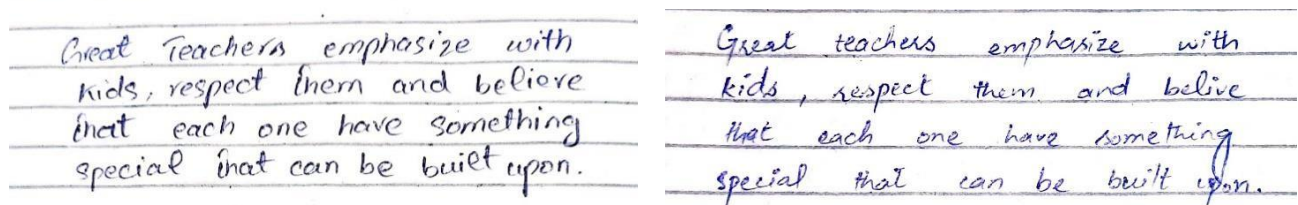 Great Teachers emphasize with
kids, respect them and believe
that each one have something
special that can be built upon.
Great teachers emphasize with
kids, respect them and belive
that each one have something
special that can be built upon.